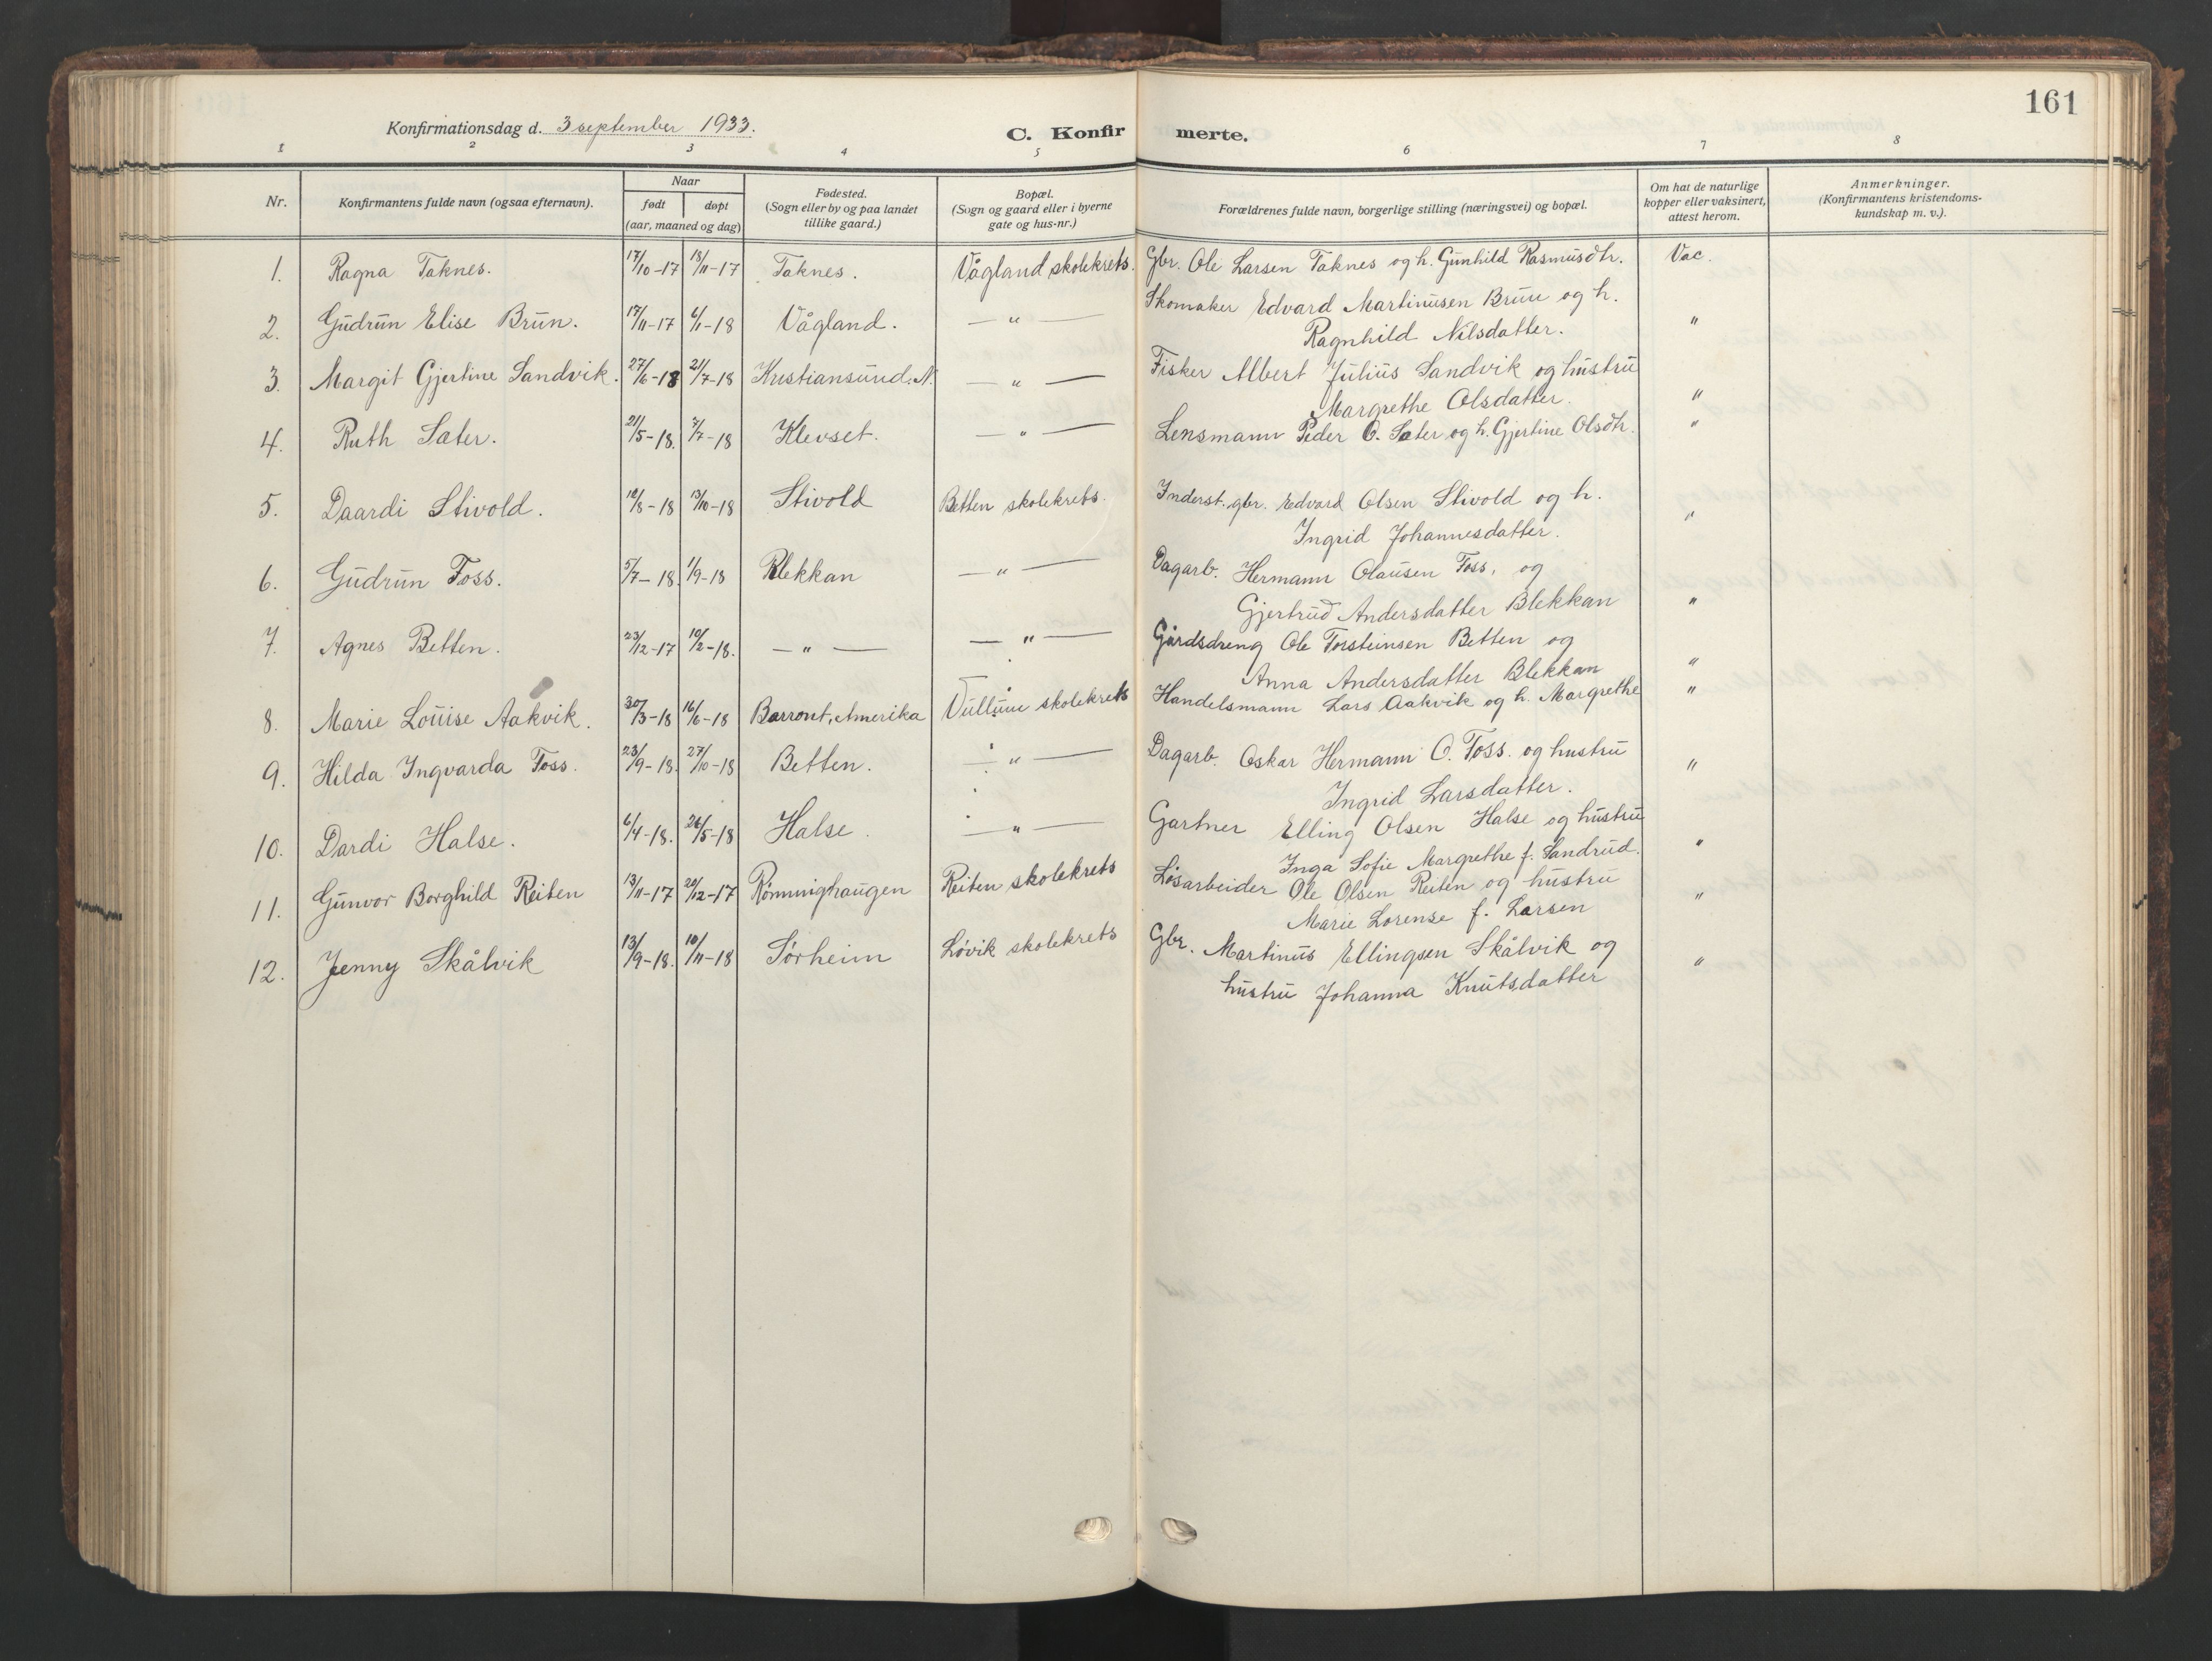 161
Konfirmationsdag d. 3 september 1933.
C. Konfirmerte.
1 2 3 4 5 6 7 8
Nr.
Konfirmantens fulde navn (ogsaa efternavn).
Naar
født døpt
(aar, maaned og dag)
Fødested.
(Sogn eller by og paa landet
tillike gaard.)
Bopæl.
(Sogn og gaard eller i byerne
gate og hus-nr.)
Forældrenes fulde navn, borgerlige stilling (næringsvei) og bopæl.
Om hat de naturlige
kopper eller vaksinert,
attest herom.
Anmerkninger.
(Konfirmantens kristendoms-
kundskap m. v.).
1. Ragna Taknes. 17/10-17 18/11-17 Taknes. Vågland skolekrets. Gbr. Ole Larsen Taknes og h. Gunhild Rasmusdtr. Vac.
2. Gudrun Elise Brun. 17/11-17 6/1-18 Vågland. — " — Skomaker Edvard Martinusen Brun og h.
Ragnhild Nilsdatter. "
3. Margit Gjertine Sandvik. 27/6-18 21/7-18 Kristiansund. N. — " — Fisker Albert Julius Sandvik og hustru
Margrethe Olsdatter. "
4. Ruth Sæter. 21/5-18. 7/7-18 Klevset. — " — Lensmann Peder O. Sæter og h. Gjertine Olsdtr. "
5. Daardi Stivold. 12/8-18 13/10-18 Stivold Betten skolekrets. Inderst. gbr. Edvard Olsen Stivold og h.
Ingrid Johannesdatter. "
6. Gudrun Foss. 5/7-18. 1/9-18 Blekkan — " — Dagarb. Hermann Olausen Foss, og
Gjertrud Andersdatter Blekkan "
7. Agnes Betten. 23/12-17 10/2-18. — " — — " — Gårdsdreng Ole Torsteinsen Betten og
Anna Andersdatter Blekkan "
8. Marie Louise Aakvik. 30/3-18 16/6-18 Barront, Amerika Vullum skolekrets Handelsmann Lars Aakvik og h. Margrethe "
9. Hilda Ingvarda Foss. 23/9-18. 27/10-18 Betten. — " — Dagarb. Oskar Hermann O. Foss. og hustru
Ingrid Larsdatter. "
10. Dardi Halse. 6/4-18. 26/5-18 Halse. — " — Gartner Elling Olsen Halse og hustru
Inga Sofie Margrethe f. Sandrud. "
11. Gunvor Borghild Reiten 13/11-17 20/12-17 Rønninghaugen Reiten skolekrets Løsarbeider Ole Olsen Reiten og hustru
Marie Lorense f. Larsen "
12. Jenny Skålvik 13/9-18. 10/11-18 Sørheim Løvik skolekrets Gbr. Martinus Ellingsen Skålvik og
hustru Johanna Knutsdatter "